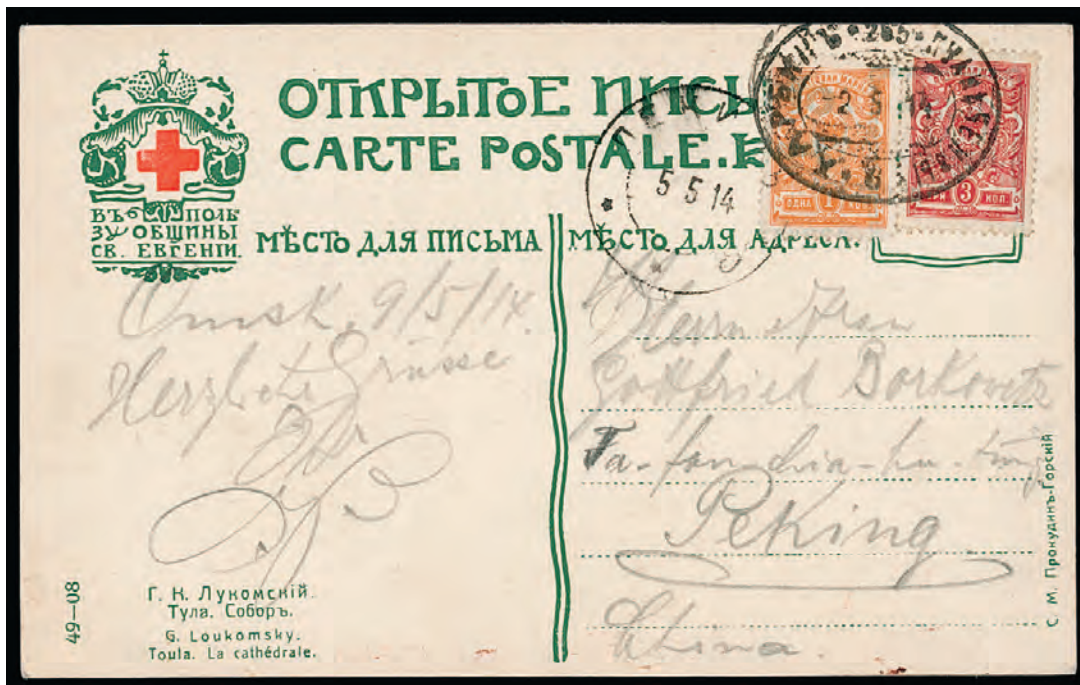 ОТКРЫТОЕ ПИСЬ
CARTE POSTALE.
ВЪ ПОЛЬ
ЗУ ОБЩИНЫ
СВ. ЕВГЕНІИ.
МѢСТО ДЛЯ ПИСЬМА
МѢСТО ДЛЯ АДРЕСА.
5 5 14
ОДНА 1 КОП
3 КОП.
Omsk, 9/5/14.
Herzliche Grüsse
Herrn Frau
Gottfried Borkowitz
Peking
China.
Г. К. Лукомскій.
Тула. Соборъ.
G. Loukomsky.
Toula. La cathédrale.
49—08
С. М. Прокудинъ-Горскій